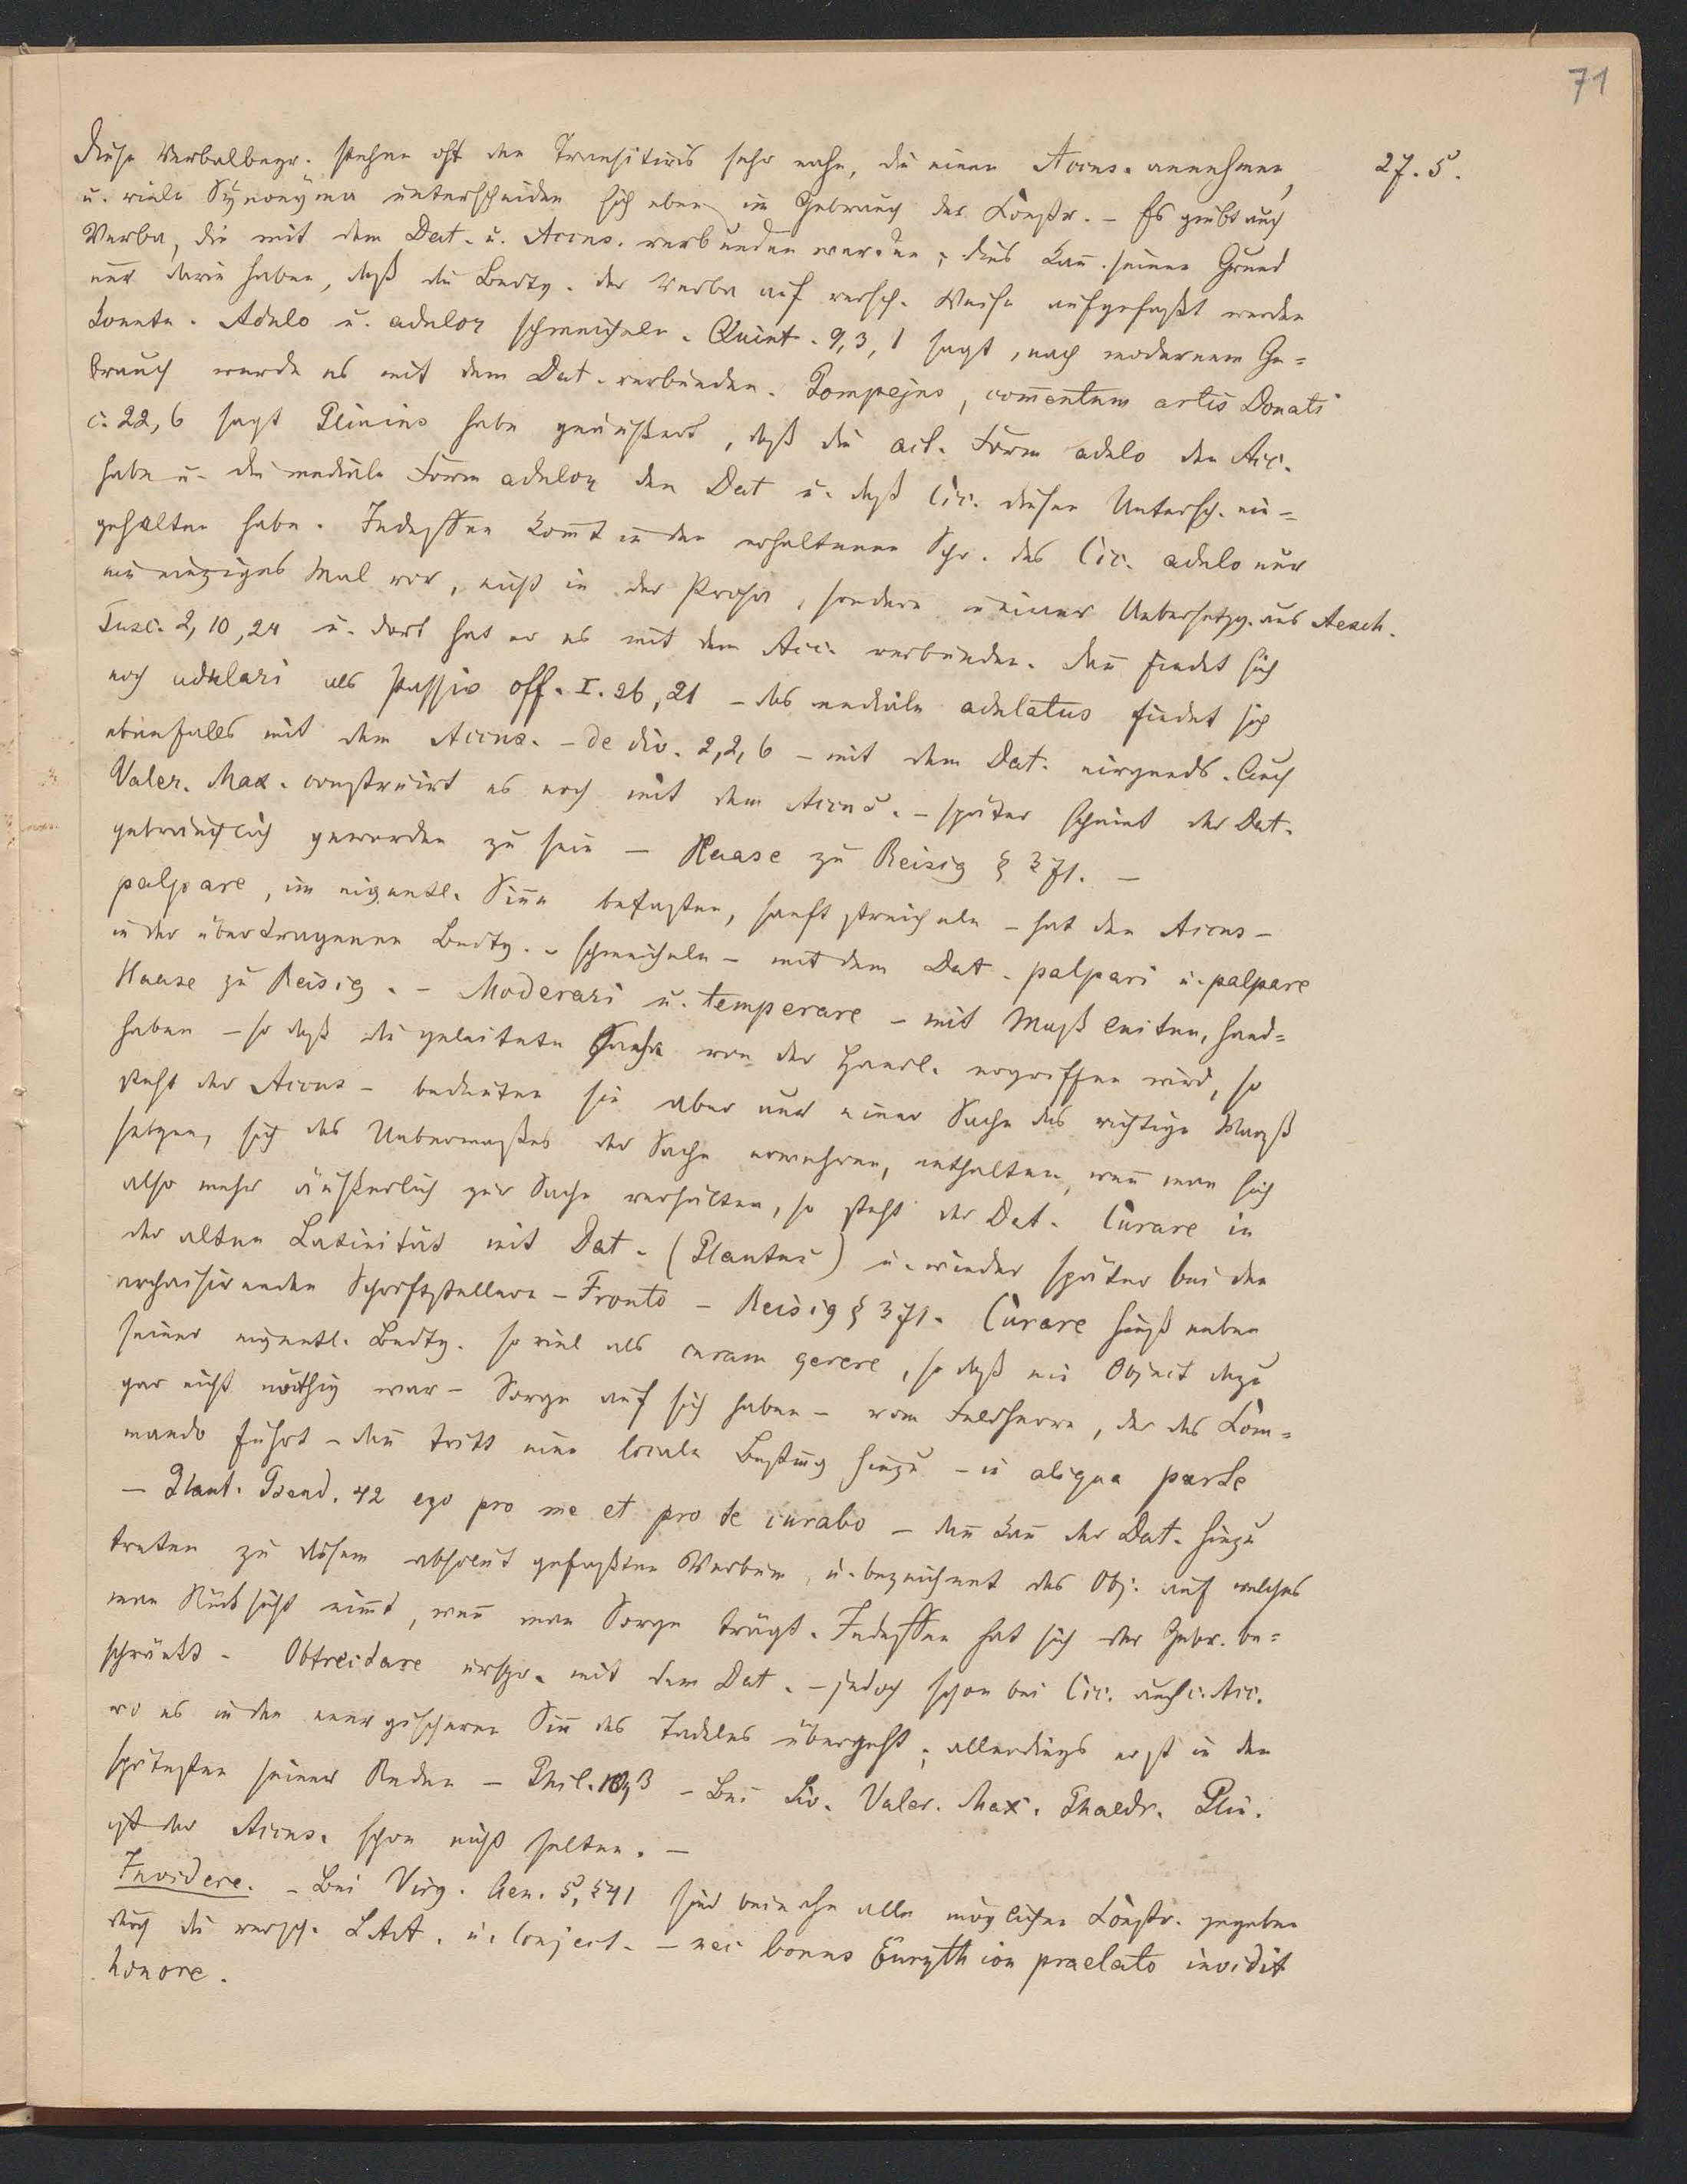 71
27. 5.
Diese Verbalbegr. stehen oft den Transitivis sehr nahe, die einen Accus. annehmen,
u. viele Synonyma unterscheiden sich eben im Gebrauch der Constr. – Es giebt auch
Verba, die mit dem Dat. u. Accus. verbunden werden; dies kan̄ seinen Grund
nur darin haben, daß die Bedtg. der Verba auf versch. Weise aufgefaßt werden
konnte. Adulo u. adulor schmeicheln. Quint. 9, 3, 1 sagt, nach modernem Ge=
brauch werde es mit dem Dat. verbunden. Pompejus, com̄entum artis Donati
c. 22, 6 sagt Plinius habe geäußert, daß die act. Form adulo den Acc.
habe u. die mediale Form adulor den Dat u. daß Cic. diesen Untersch. ein=
gehalten habe. Indessen kom̄t in den erhaltenen Schr. des Cic. adulo nur
ein einziges Mal vor, nicht in der Prosa, sondern in einer Uebersetzg. aus Aesch.
Tusc. 2, 10, 24 u. dort hat er es mit dem Acc. verbunden. Dan̄ findet sich
noch adulari als Passiv off. I. 26, 21 – das mediale adulatus findet sich
ebenfalls mit dem Accus. – de div. 2, 2, 6 – mit dem Dat. nirgends. Auch
Valer. Max. construirt es noch mit dem Accus. – später scheint der Dat.
gebräuchlich geworden zu sein – Haase zu Reisig § 371. –
palpare, im eigentl. Sin̄e betasten, sanft streicheln – hat den Accus –
in der übertragenen Bedtg. – schmeicheln – mit dem Dat. palpari u. palpare
Haase zu Reisig. – Moderari u. temperare – mit Maß leiten, hand=
haben – so daß die geleitete Sache von der Handl. ergriffen wird, so
steht der Accus – bedeuten sie aber nur einer Sache das richtige Maaß
setzen, sich des Uebermaßes der Sache erwehren, enthalten, wen̄ man sich
also mehr äußerlich zur Sache verhalten, so steht der Dat. Curare in
der alten Latinität mit Dat. (Plautus) u. wieder später bei den
archaisirenden Schriftstellern – Fronto – Reisig § 371. Curare hieß neben
seiner eigentl. Bedtg. so viel als curam gerere, so daß ein Object dazu
gar nicht nöthig war – Sorge auf sich haben – vom Feldherrn, der das Com=
mando führt – dan̄ tritt eine locale Bestim̄g hinzu – in aliqua parte
– Plaut. Pseud. 42 ego pro me et pro te curabo – dan̄ kan̄ der Dat. hinzu
treten zu diesem absolut gefaßten Verbum, u. bezeichnet das Obj. auf welches
man Rücksicht nim̄t, wen̄ man Sorge trägt. Indessen hat sich der Gebr. be=
schränkt. Obtrectare urspr. mit dem Dat. – jedoch schon bei Cic. auch c. Acc.
wo es in den energischeren Sin̄ des Tadelns übergeht; allerdings erst in den
spätesten seiner Reden – Phil. – Bei Liv. Valer. Max. Phaedr. Plin.
ist der Accus. schon nicht selten. –
Invidere. – Bei Virg. Aen. 5, 541 sind beinahe alle möglichen Constr. gegeben
durch die versch. LArt. u. Conject. – nec bonus Eurythion praelato invidit
honore.